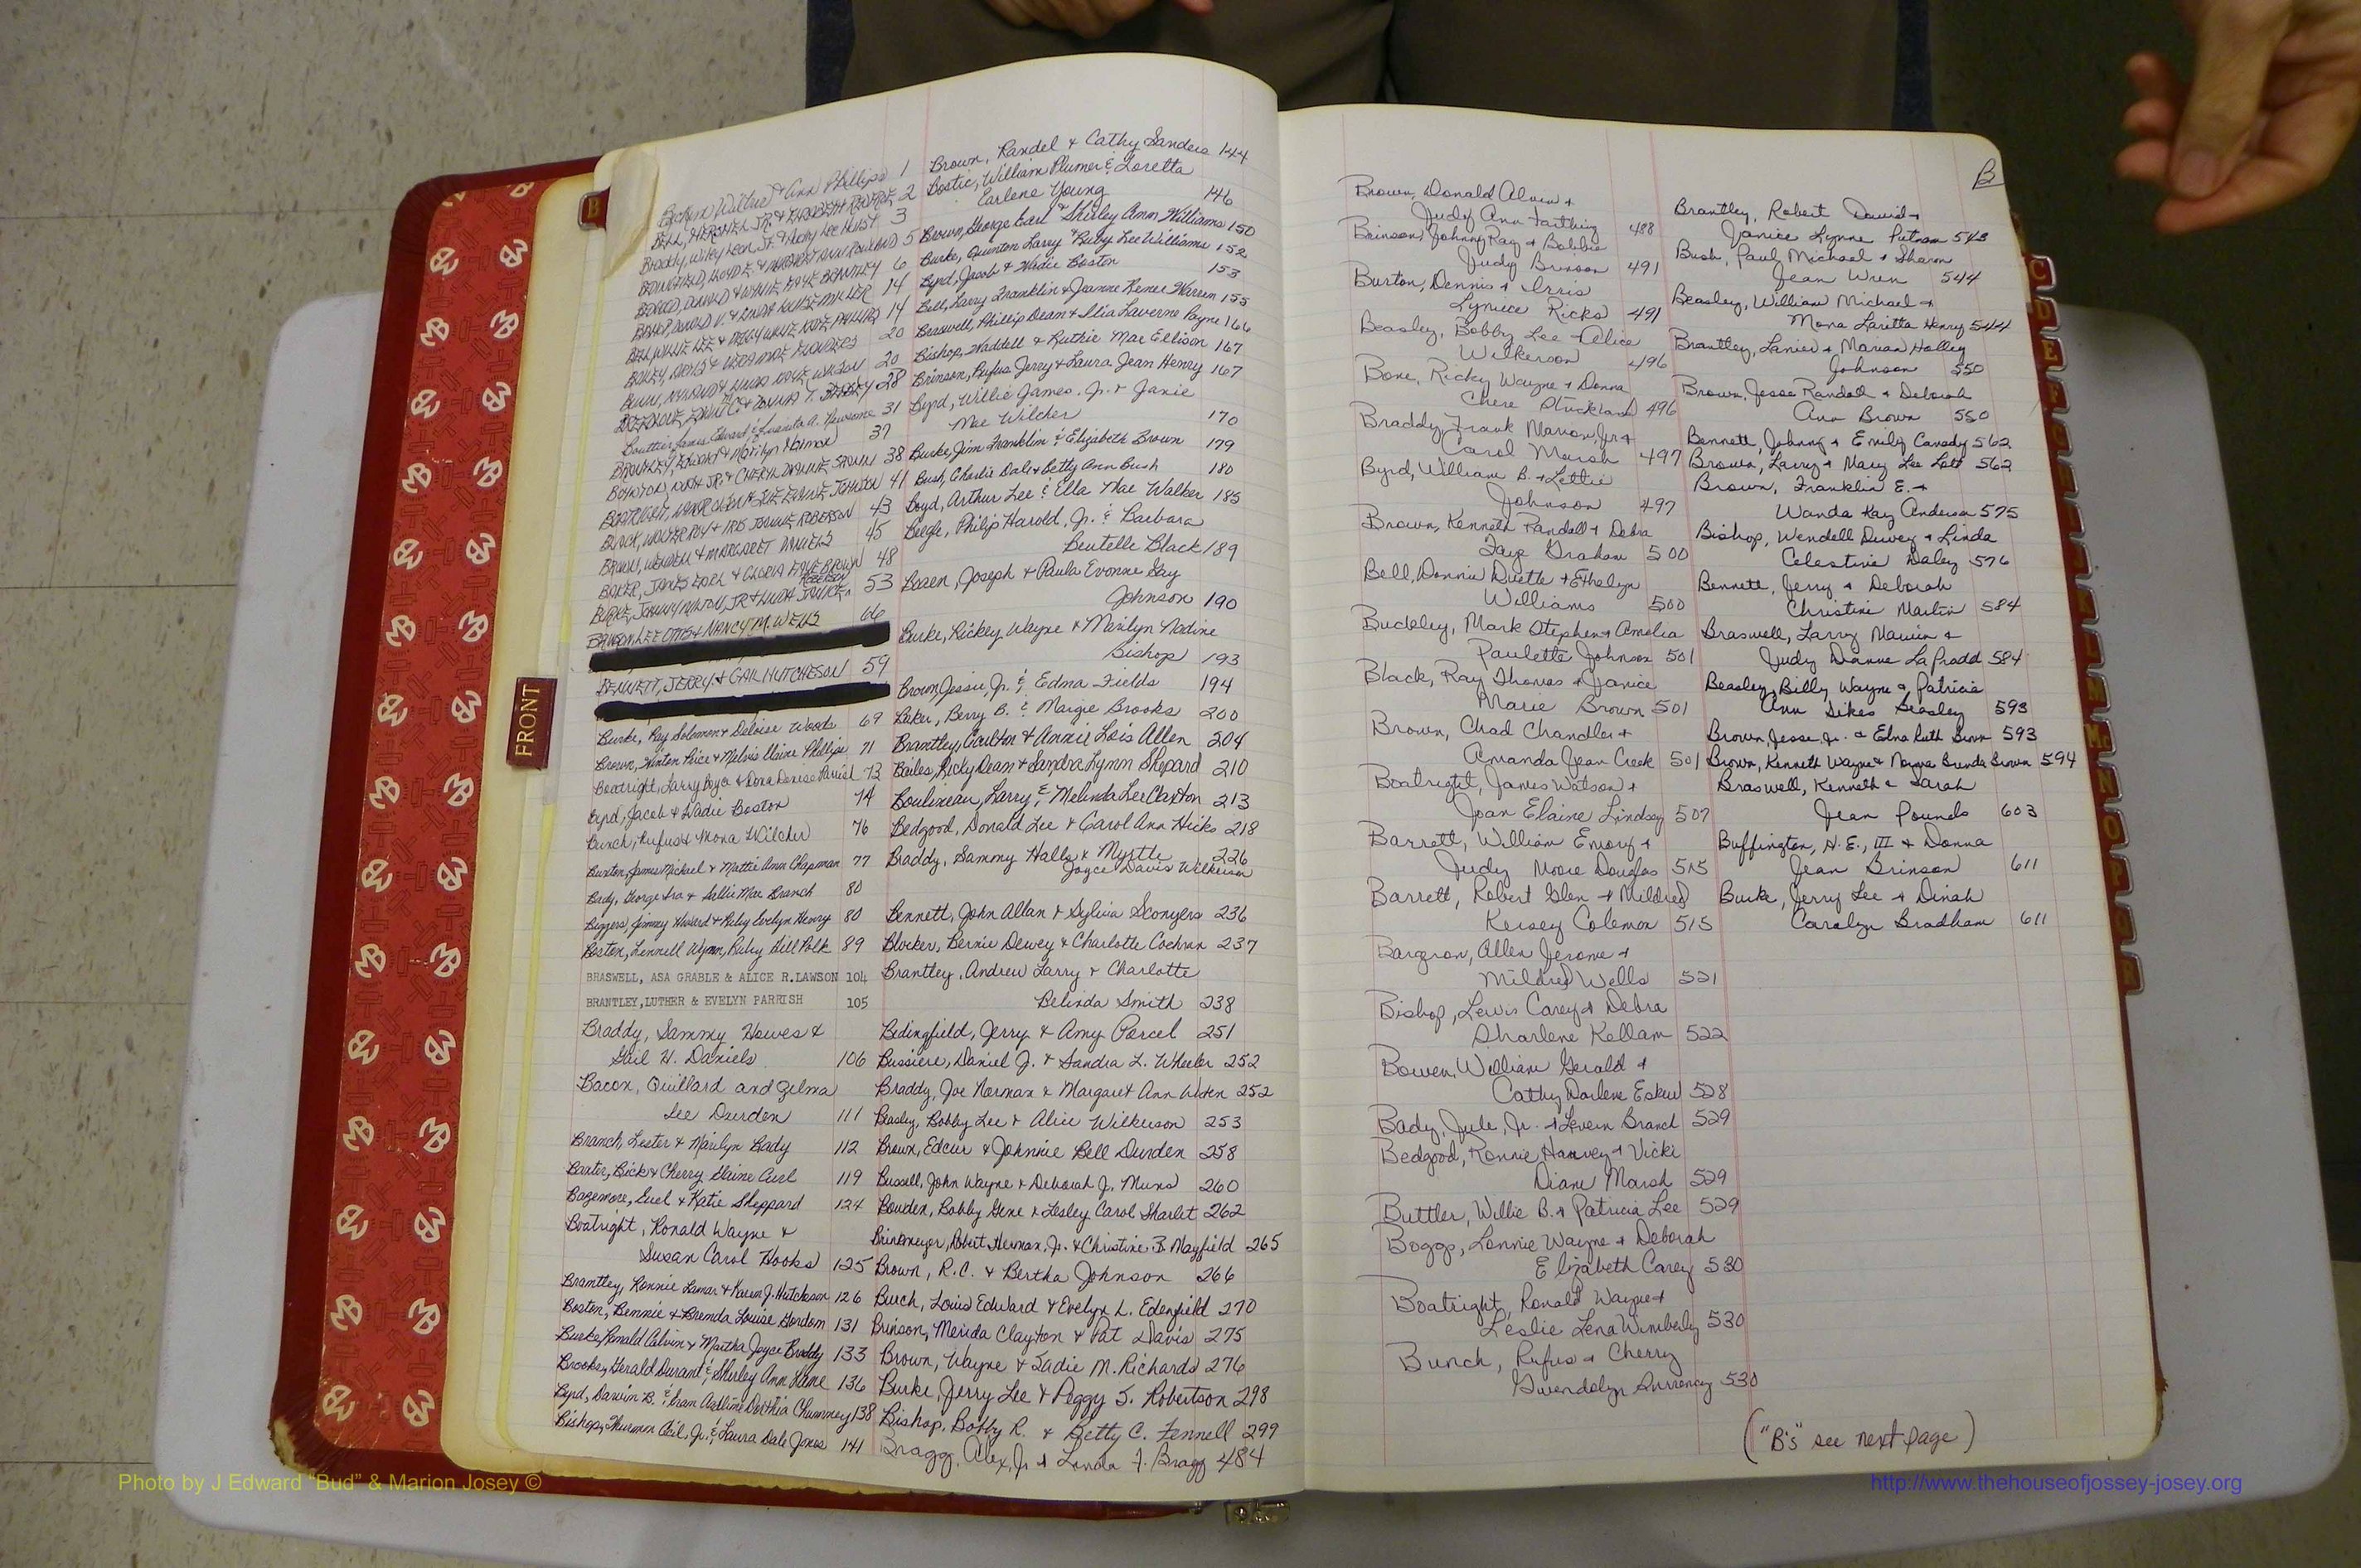 B
FRONT
Ann Phillips 1
BELL, HERSHEL JR & ELIZABETH 2
Braddy, Wiley Leon, Jr. & Judy Lee Hurst 3
BEDINGFIELD, & MARGARET ANN ROWLAND 5
BEDGOOD, DONALD & WYNIE FAYE BRANTLEY 6
BISHOP, DONALD V. & LINDA LOUISE MILLER 14
BELL, WILLIE LEE & PHILLIPS 14
BAILEY, & VEDA MAE FLOWERS 20
& LINDA FAYE WILSON 20
28
James Edward & Juanita A. Newsome 31
BRANTLEY, & Marilyn Harmon 37
BOYNTON, JR. & CHERYL 38
BOATRIGHT, JOHNSON 41
BLACK, WALTER ROY & IRIS JOANNE ROBERSON 43
BROWN, WENDELL & MARGARET DANIELS 45
BAKER, JAMES EARL & GLORIA FAYE BROWN 48
BURKE, JOHNNY MILTON, JR & LINDA 53
LEE OTIS & NANCY M. WELLS 66
BENNETT, JERRY & GAIL HUTCHESON 59
Burke, Ray Solomon & Deloise Woods 69
Brown, Hinton Price & Melvis Elaine Phillips 71
Boatright, Larry Boyce & Dona Denise Parrish 73
Byrd, Jacob & Wadie Boston 74
Bunch, Rufus & Mona Wilcher 76
Buxton, James Michael & Mattie Ann Chapman 77
Bady, George Ira & Sallie Mae Branch 80
Biggers, Jimmy Howard & Ruby Evelyn Henry 80
Boston, Lennell Wynn, Ruby Dill Polk 89
BRASWELL, ASA GRABLE & ALICE R.LAWSON 104
BRANTLEY,LUTHER & EVELYN PARRISH 105
Braddy, Sammy Howes &
Gail W. Daniels 106
Bacon, Quillard and Zelma
Lee Durden 111
Branch, Lester & Marilyn Bady 112
Baxter, Rick & Cherry Elaine Curl 119
Bazemore, Euel & Katie Sheppard 124
Boatright, Ronald Wayne &
Susan Carol Hooks 125
Brantley, Ronnie Lamar & Karen J. Hutcheson 126
Boston, Bennie & Brenda Louise Gordon 131
Burke, Ronald Calvin & Martha Joyce Braddy 133
Brooks, Gerald Durant & Shirley Ann Lane 136
Byrd, Darwin B. & Chumney 138
Bishop, Thurman Cecil, Jr. & Laura Dale Jones 141
Brown, Randel & Cathy Sanders 144
Bostic, William Plumer & Loretta
Earlene Young 146
Brown, George Earl & Shirley Ann Williams 150
Burke, Quinton Larry & Ruby Lee Williams 152
Byrd, Jacob & Wadie Boston 153
Bell, Larry Franklin & Jeanne Renee Warren 155
Braswell, Phillip Dean & Ilia Laverne Payne 166
Bishop, Waddell & Ruthie Mae Ellison 167
Brinson, Rufus Jerry & Laura Jean Henry 167
Byrd, Willie James, Jr. & Janie
Mae Wilcher 170
Burke, Jim Franklin & Elizabeth Brown 179
Bush, Charlie Dale & Betty Ann Bush 180
Boyd, Arthur Lee & Ella Mae Walker 185
Beegle, Philip Harold, Jr. & Barbara
Beutelle Black 189
Basen, Joseph & Paula Evonne Gay
Johnson 190
Burke, Rickey Wayne & Marilyn Nadine
Bishop 193
Brown, Jessie, Jr. & Edna Fields 194
Baker, Berry B. & Margie Brooks 200
Brantley, Coulton & Annie Lois Allen 204
Bailes, Ricky Dean & Sandra Lynn Shepard 210
Boulineau, Larry & Melinda Lee Claxton 213
Bedgood, Donald Lee & Carol Ann Hicks 218
Braddy, Sammy Halls & Myrtle 226
Joyce Davis Wilkerson
Bennett, John Allan & Sylvia Sconyers 236
Blocker, Bernie Dewey & Charlotte Cochran 237
Brantley, Andrew Larry & Charlotte
Belinda Smith 238
Bedingfield, Jerry & Amy Parcel 251
Bussiere, Daniel J. & Sandra L. Wheeler 252
Braddy, Joe Norman & Margaret Ann Uden 252
Beasley, Bobby Lee & Alice Wilkerson 253
Brown, Edcar & Johnnie Bell Durden 258
Bussell, John Wayne & Deborah J. Muns 260
Bowden, Bobby Gene & Lesley Carol Sharlet 262
Brinkmeyer, Robert Herman, Jr. & Christine B. Mayfield 265
Brown, R.C. & Bertha Johnson 266
Burch, Louis Edward & Evelyn L. Edenfield 270
Brinson, Merida Clayton & Pat Davis 275
Brown, Wayne & Sadie M. Richards 276
Burke, Jerry Lee & Peggy S. Robertson 298
Bishop, Bobby R. & Betty C. Fennell 299
Bragg, Alex, Jr. & Linda F. Bragg 484
B
Brown, Donald Alvin &
Judy Ann Farthing 488
Brinson, Johnny Ray & Bobbie
Judy Brinson 491
Burton, Dennis & Irris
Lyniece Ricks 491
Beasley, Bobby Lee & Alice
Wilkerson 496
Bone, Ricky Wayne & Donna
Chere Strickland 496
Braddy, Frank Marion, Jr. &
Carol Marsh 497
Byrd, William B. & Lettie
Johnson 497
Brown, Kenneth Randall & Debra
Faye Graham 500
Bell, Donnie Duette & Ethelyn
Williams 500
Buckley, Mark Stephen & Amelia
Paulette Johnson 501
Black, Ray Thomas & Janice
Marie Brown 501
Brown, Chad Chandler &
Amanda Jean Creek 501
Boatright, James Watson &
Joan Elaine Lindsey 507
Barrett, William Emory &
Judy Moore Douglas 515
Barrett, Robert Glen & Mildred
Kersey Colemon 515
Bargeron, Allen Jerome &
Mildred Wells 521
Bishop, Lewis Carey & Debra
Sharlene Kellam 522
Bowen, William Gerald &
Cathy Darlene Eskew 528
Bady, Jule, Jr. & Levern Branch 529
Bedgood, Ronnie Harvey & Vicki
Diane Marsh 529
Buttler, Willie B. & Patricia Lee 529
Boggs, Lonnie Wayne & Deborah
Elizabeth Carey 530
Boatright, Ronald Wayne &
Leslie Lena Wimberly 530
Bunch, Rufus & Cherry
Gwendolyn Surrency 530
Brantley, Robert David &
Janice Lynne Putnam 543
Bush, Paul Michael & Sharon
Jean Wren 544
Beasley, William Michael &
Mona Laritta Henry 544
Brantley, Lanier & Marian Holley
Johnson 550
Brown, Jesse Randall & Deborah
Ann Brown 550
Bennett, Johnny & Emily Canady 562
Brown, Larry & Mary Lee Lott 562
Brown, Franklin E. &
Wanda Kay Anderson 575
Bishop, Wendell Dewey & Linda
Celestine Daley 576
Bennett, Jerry & Deborah
Christine Martin 584
Braswell, Larry Marvin &
Judy Dianne LaPradd 584
Beasley, Billy Wayne & Patricia
Ann Sikes Beasley 593
Brown, Jesse, Jr. & Edna Ruth Brown 593
Brown, Kenneth Wayne & Brenda Brown 594
Braswell, Kenneth & Sarah
Jean Pounds 603
Buffington, H.E., III & Donna
Jean Brinson 611
Burke, Jerry Lee & Dinah
Carolyn Bradham 611
("B's" see next page)
C
D
E
M
Mc
N
O
Photo by J Edward “Bud” & Marion Josey ©
http://www.thehouseofjossey-josey.org